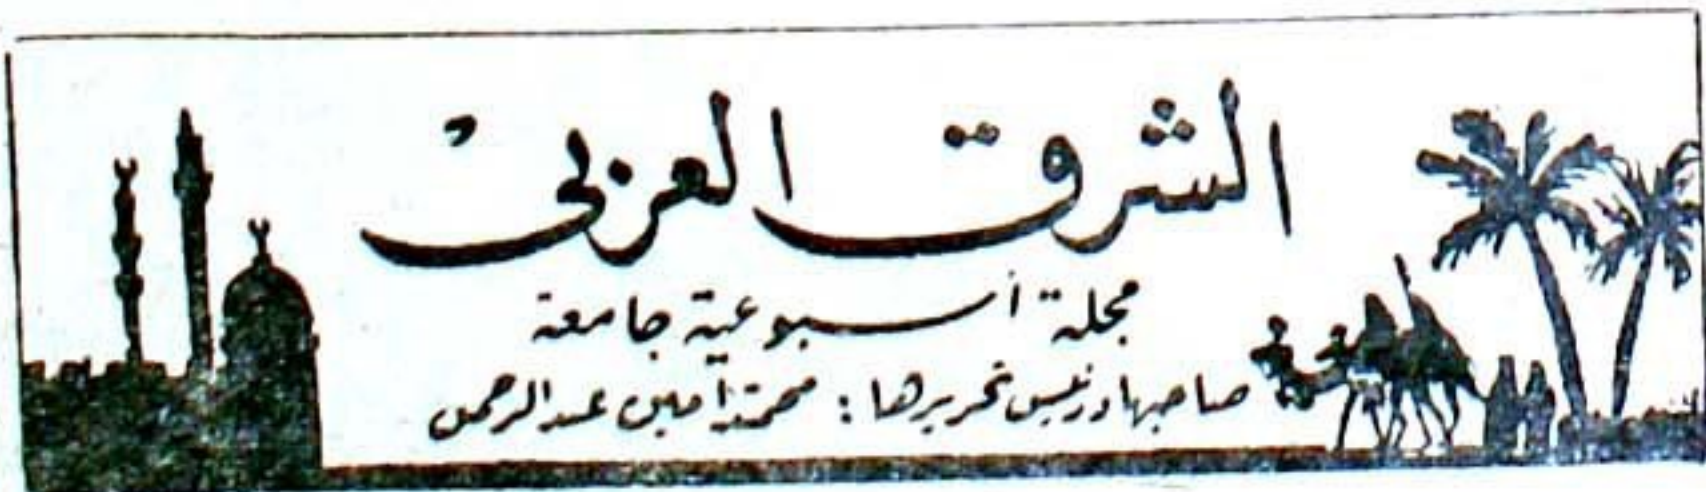 الشرق العربي
مجلة أسبوعية جامعة
صاحبها ورئيس تحريرها : محمد أمين عبد الرحمن